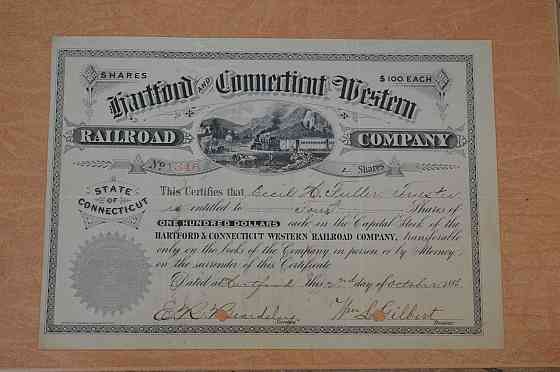 SHARES $100 EACH
Hartford AND Connecticut Western
RAILROAD COMPANY
No 1346 Shares
STATE OF CONNECTICUT
This Certifies that Cecil H. Fuller, Trustee
is entitled to Four Shares of
ONE HUNDRED DOLLARS each in the Capital Stock of the
HARTFORD & CONNECTICUT WESTERN RAILROAD COMPANY, transferable
only on the books of the Company in person or by Attorney
on the surrender of this Certificate
Dated at Hartford this 2nd day of October
E. R. Beardsley Wm L Gilbert